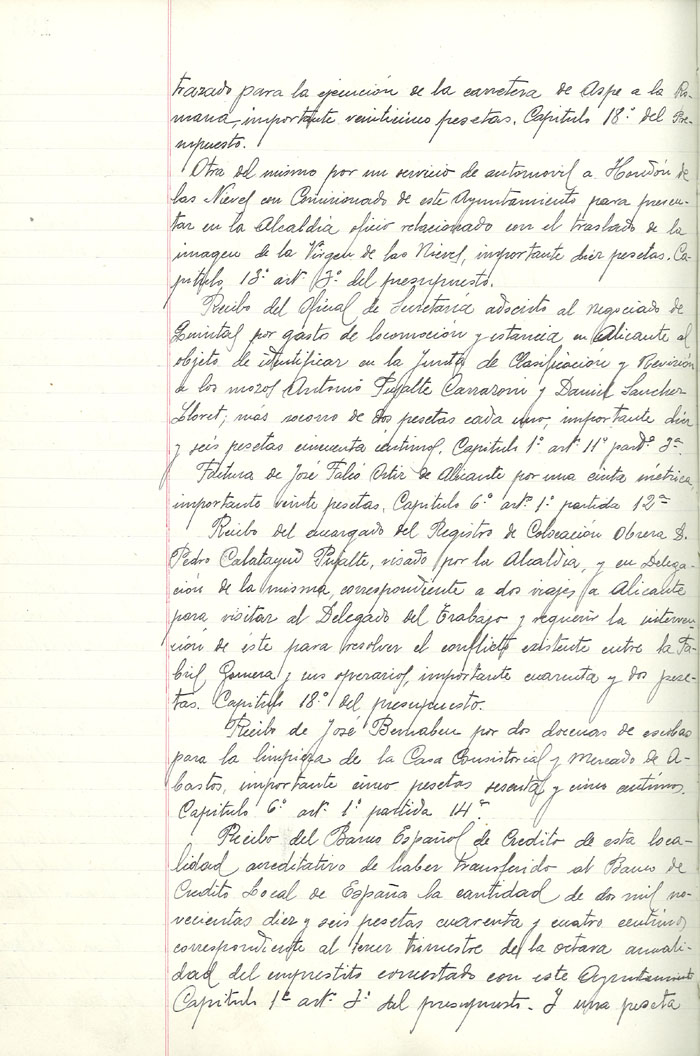 trazado para la ejecución de la carretera de Aspe a la Ro-
mana, importante veinticinco pesetas. Capitulo 18.º del Pre-
supuesto.
Otra del mismo por un servicio de automovil a Hondón de
las Nieves con Comisionado de este Ayuntamiento para presen-
tar en la Alcaldia oficio relacionado con el traslado de la
imagen de la Virgen de las Nieves, importante diez pesetas. Ca-
pitulo 13.º art.º 3.º del presupuesto.
Recibo del Oficial de Secretaría adscrito al negociado de
Quintas por gastos de locomoción y estancia en Alicante al
objeto de identificar en la Junta de Clasificación y Revisión
a los mozos Antonio Pujalte Carrazoni y Daniel Sanchez
Lloret; más socorro de dos pesetas cada uno, importante diez
y seis pesetas cincuenta centimos. Capitulo 1.º art.º 11º part.ª 3ª.
Factura de José Ortiz de Alicante por una cinta métrica,
importante veinte pesetas. Capitulo 6.º art.º 1.º partida 12ª
Recibo del encargado del Registro de Colocación Obrera D.
Pedro Calatayud Pujalte, visado por la Alcaldia, y en Delega-
ción de la misma, correspondiente a dos viajes a Alicante
para visitar al Delegado del Trabajo y requerir la interven-
ción de éste para resolver el conflicto existente entre la Fa-
bril Gomera y sus operarios, importante cuarenta y dos pese-
tas. Capitulo 18.º del presupuesto.
Recibo de José Bernabeu por dos docenas de escobas
para la limpieza de la Casa Consistorial y Mercado de A-
bastos, importante cinco pesetas sesenta y cinco centimos.
Capitulo 6.º art.º 1.º partida 14ª
Recibo del Banco Español de Credito de esta loca-
lidad acreditativo de haber transferido al Banco de
Credito Local de España la cantidad de dos mil no-
vecientas diez y seis pesetas cuarenta y cuatro centimos
correspondiente al tercer trimestre de la octava anuali-
dad del emprestito concertado con este Ayuntamiento
Capitulo 1.º art.º 3.º del presupuesto. Y una peseta